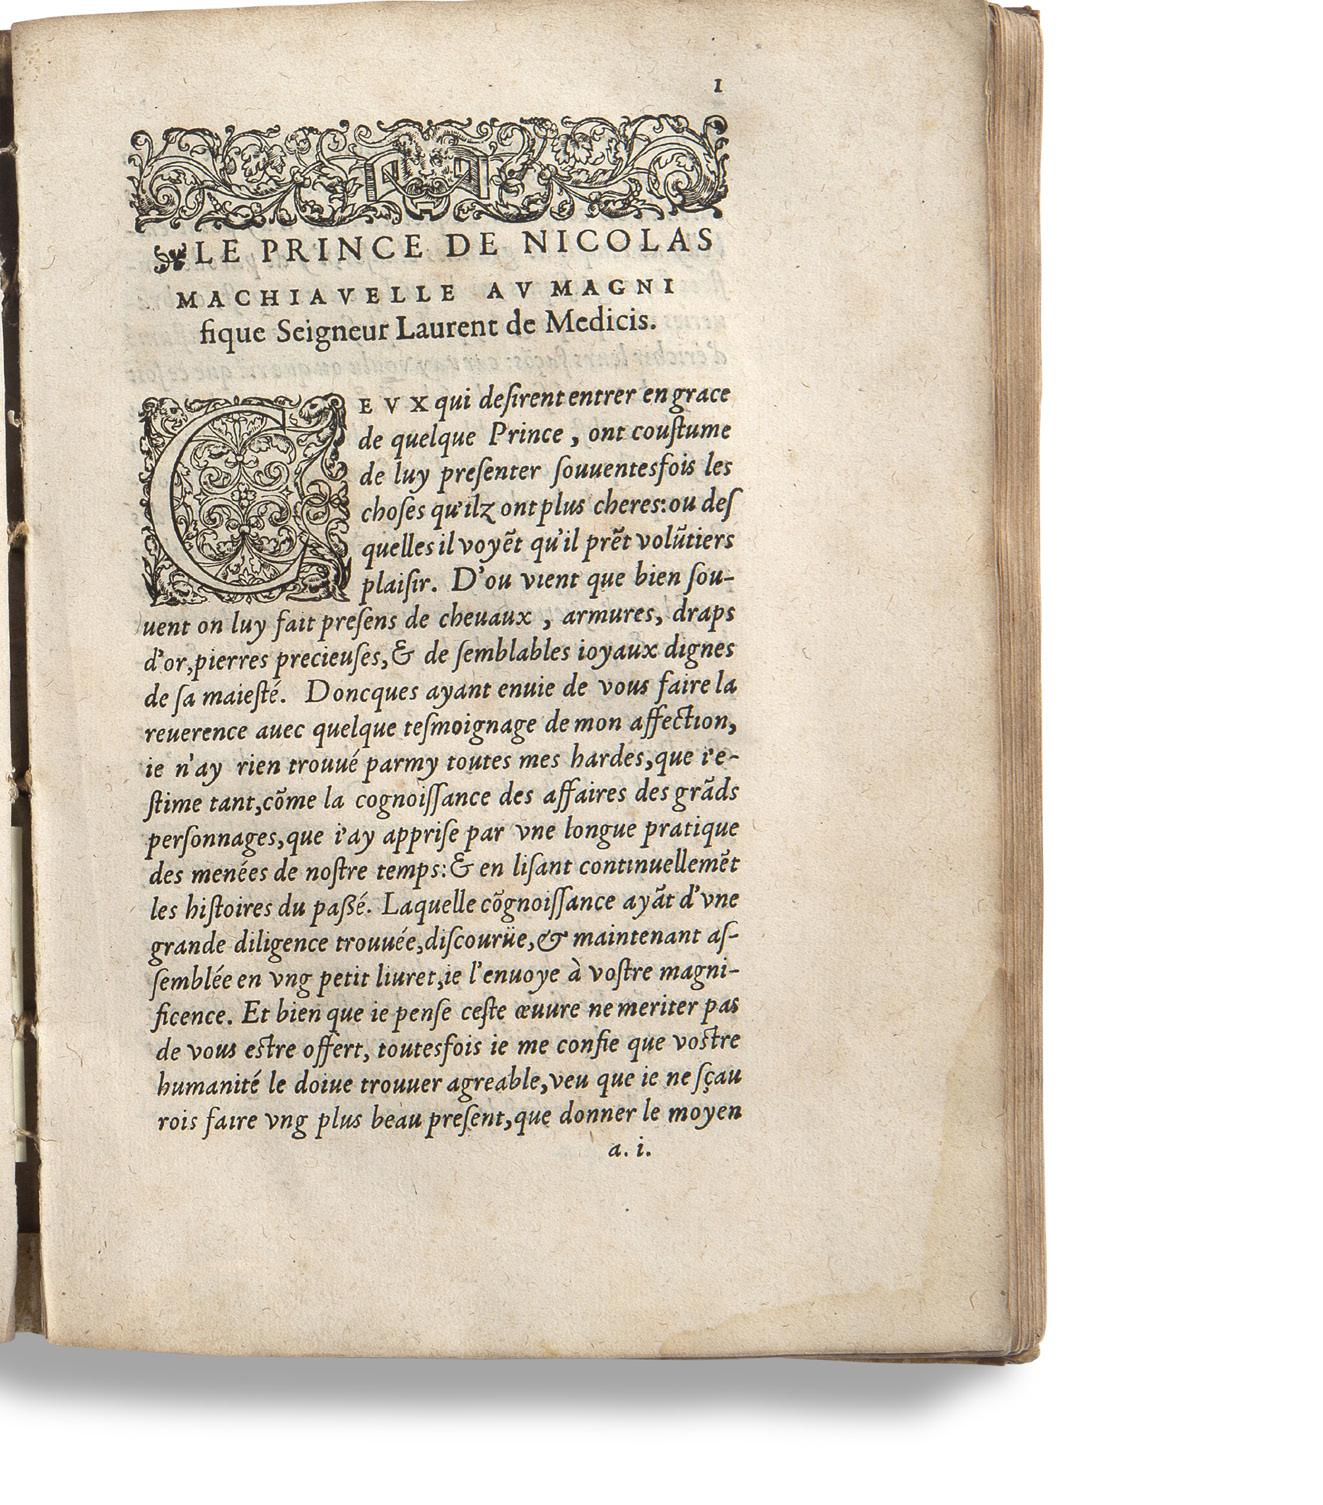 1
LE PRINCE DE NICOLAS
MACHIAVELLE AV MAGNI
fique Seigneur Laurent de Medicis.
CEVX qui deſirent entrer en grace
de quelque Prince , ont couſtume
de luy preſenter ſouuentesfois les
choſes qu'ilz ont plus cheres: ou deſ
quelles il voyẽt qu'il prẽt volũtiers
plaiſir. D'ou vient que bien ſou-
uent on luy fait preſens de cheuaux , armures, draps
d'or, pierres precieuſes, & de ſemblables ioyaux dignes
de ſa maieſté. Doncques ayant enuie de vous faire la
reuerence auec quelque teſmoignage de mon affection,
ie n'ay rien trouué parmy toutes mes hardes, que i'e-
ſtime tant, cõme la cognoiſſance des affaires des grãds
perſonnages, que i'ay appriſe par vne longue pratique
des menées de noſtre temps: & en liſant continuellemẽt
les hiſtoires du paßé. Laquelle cõgnoiſſance ayãt d'vne
grande diligence trouuée, diſcouruë, & maintenant aſ-
ſemblée en vng petit liuret, ie l'enuoye à voſtre magni-
ficence. Et bien que ie penſe ceſte œuure ne meriter pas
de vous eſtre offert, toutesfois ie me confie que voſtre
humanité le doiue trouuer agreable, veu que ie ne ſçau
rois faire vng plus beau preſent, que donner le moyen
a. i.